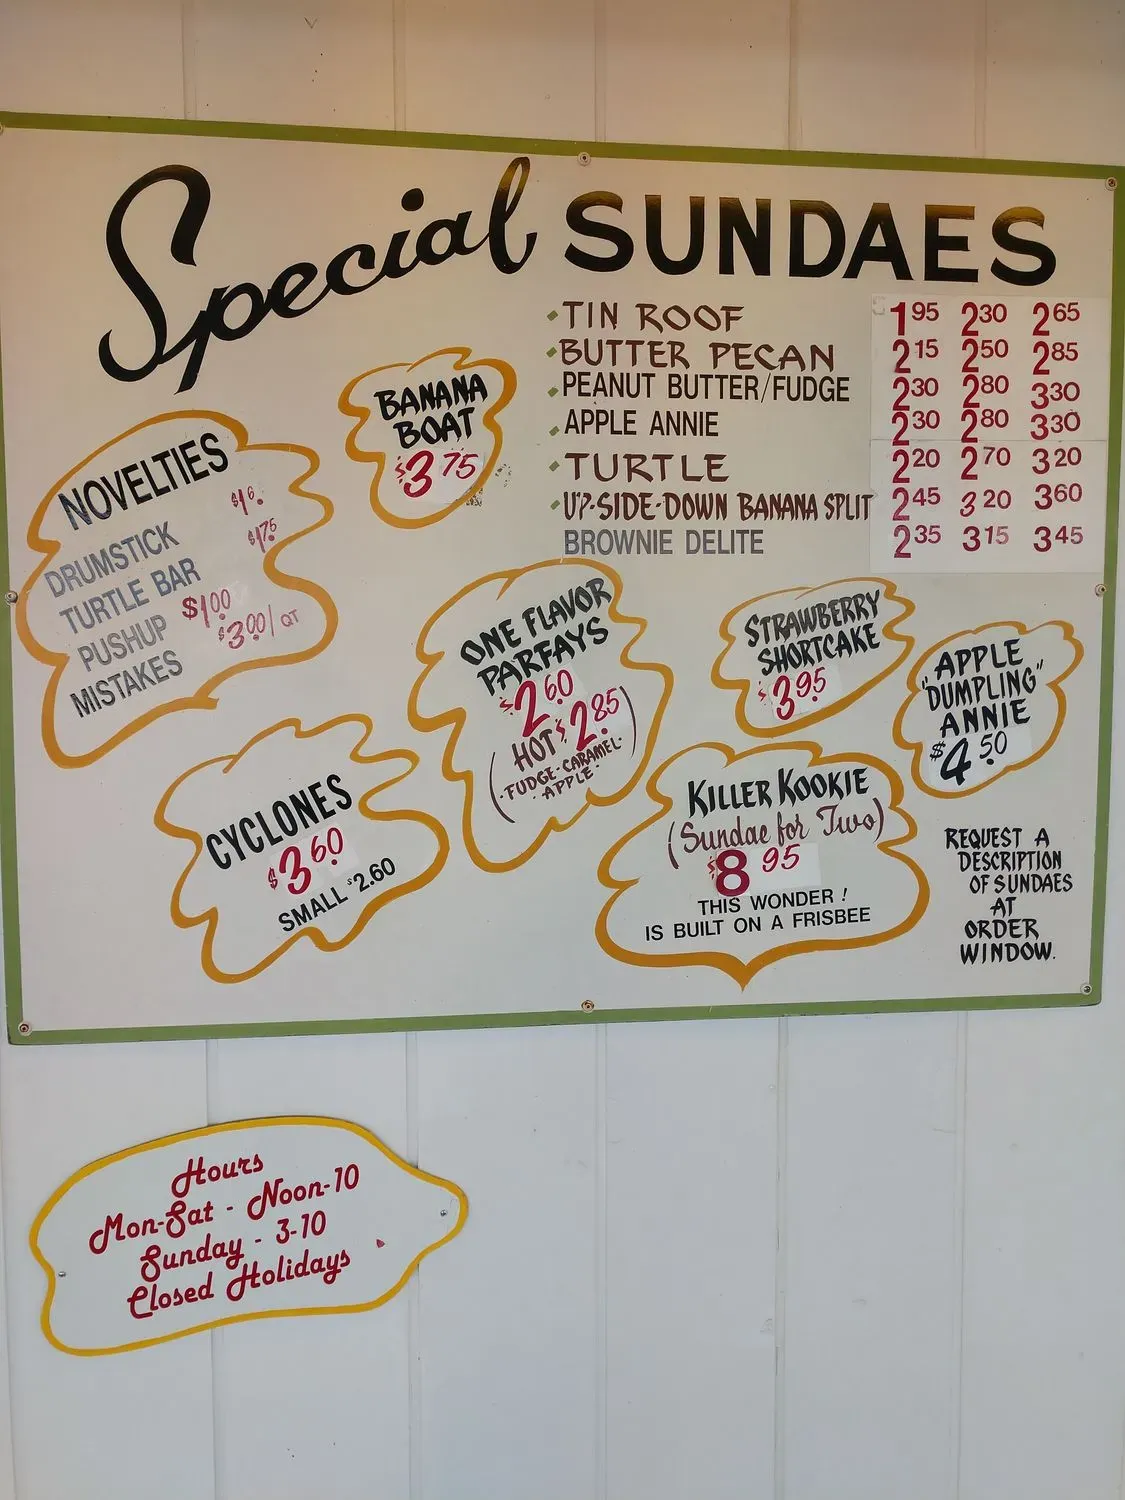 Special SUNDAES
TIN ROOF 1.95 2.30 2.65
BUTTER PECAN 2.15 2.50 2.85
PEANUT BUTTER/FUDGE 2.30 2.80 3.30
APPLE ANNIE 2.30 2.80 3.30
TURTLE 2.20 2.70 3.20
UP-SIDE-DOWN BANANA SPLIT 2.45 3.20 3.60
BROWNIE DELITE 2.35 3.15 3.45
BANANA
BOAT
$3.75
NOVELTIES
DRUMSTICK
TURTLE BAR $1.75
PUSHUP $1.00
MISTAKES $3.00/QT
ONE FLAVOR
PARFAYS
$2.60
HOT $2.85
(·FUDGE·CARAMEL·
APPLE·)
STRAWBERRY
SHORTCAKE
$3.95
APPLE
"DUMPLING"
ANNIE
$4.50
CYCLONES
$3.60
SMALL $2.60
KILLER KOOKIE
(Sundae for Two)
$8.95
THIS WONDER!
IS BUILT ON A FRISBEE
REQUEST A
DESCRIPTION
OF SUNDAES
AT
ORDER
WINDOW.
Hours
Mon-Sat - Noon-10
Sunday - 3-10
Closed Holidays